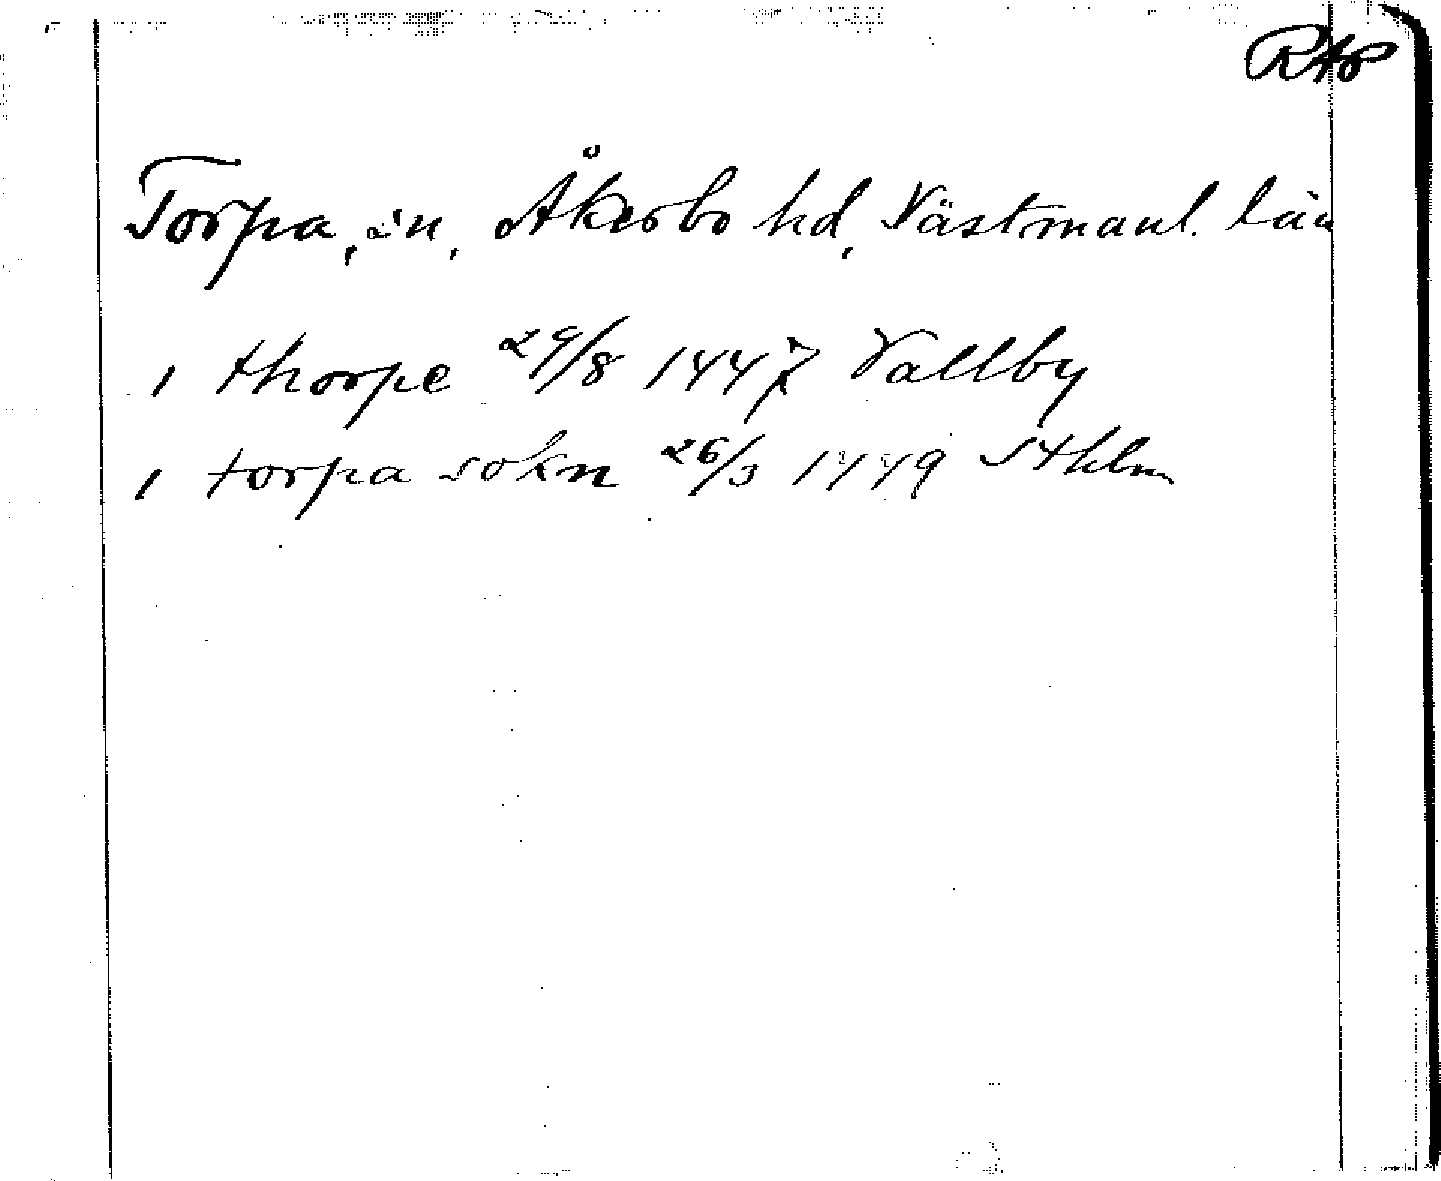 RAP
Torpa, sn, Åkerbo hd, Västmanl. län
1 thorpe 29/8 1447 Vallby
1 torpa sokn 26/3 1449 Sthlm